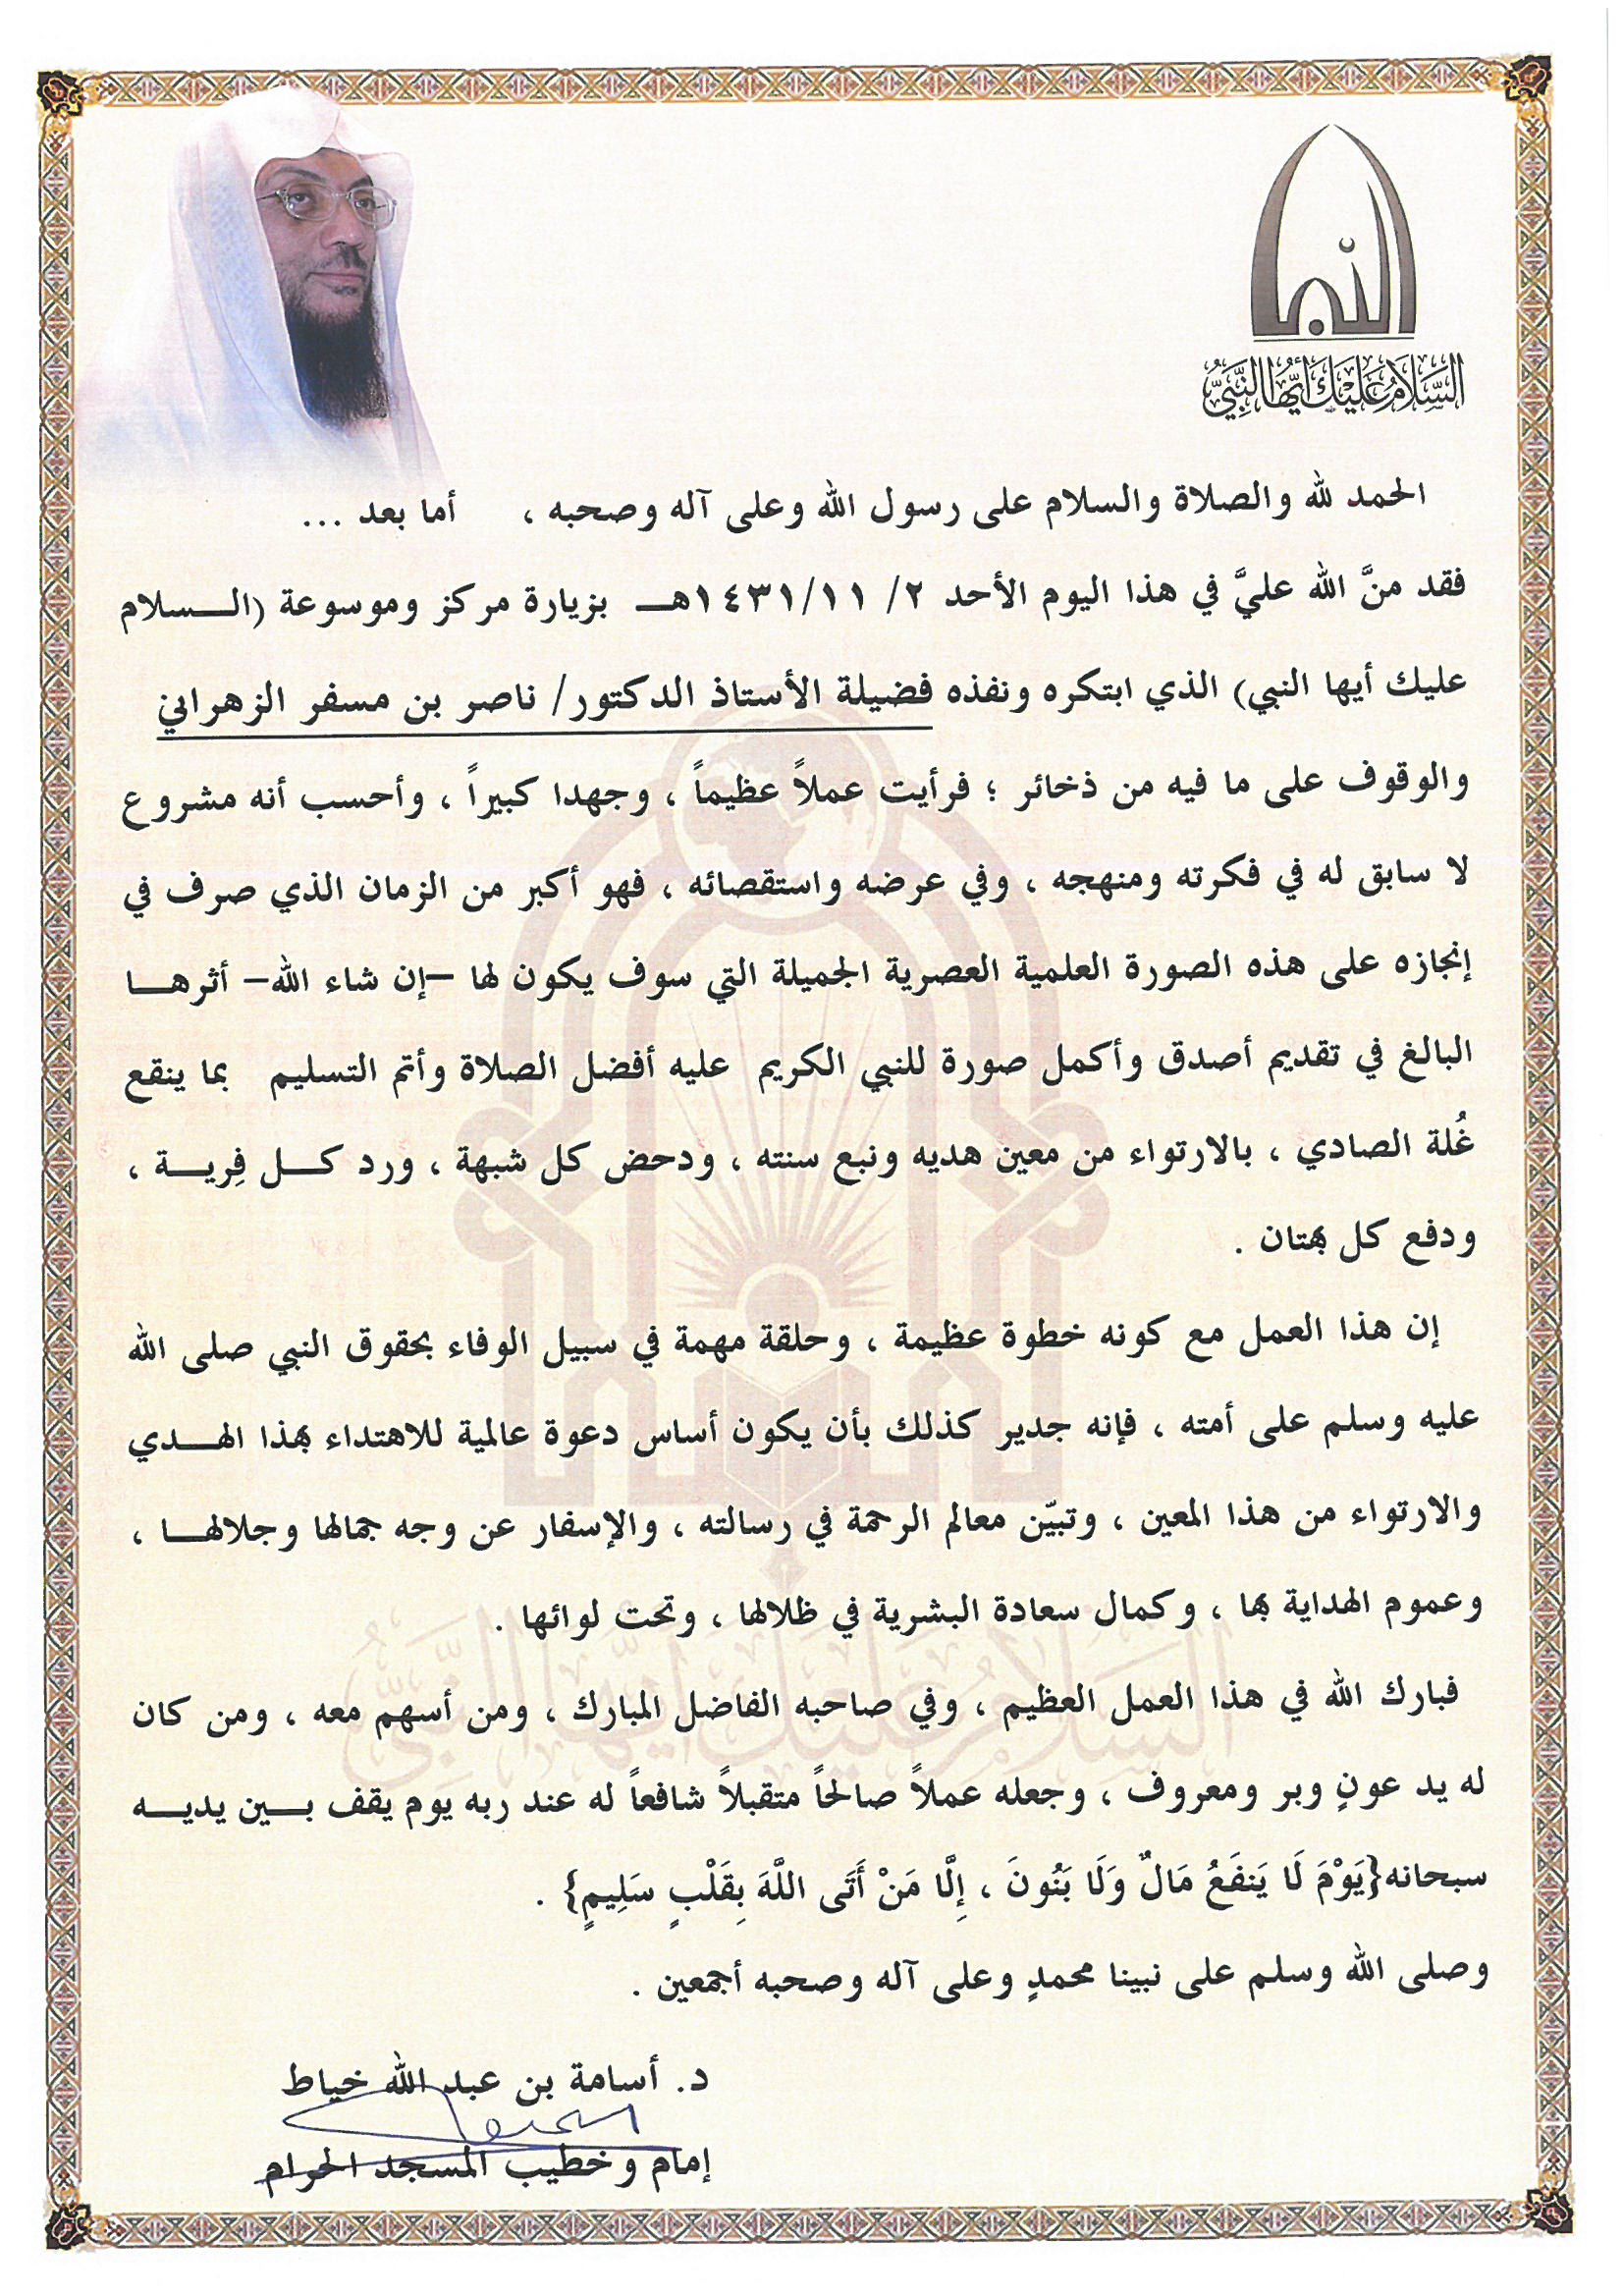 النبي
السَّلَامُ عَلَيْكَ أَيُّهَا النَّبِيُّ
الحمد لله والصلاة والسلام على رسول الله وعلى آله وصحبه ، أما بعد ...
فقد منَّ الله عليَّ في هذا اليوم الأحد ٢/ ١٤٣١/١١هــ بزيارة مركز وموسوعة (الـــسلام
عليك أيها النبي) الذي ابتكره ونفذه فضيلة الأستاذ الدكتور/ ناصر بن مسفر الزهراني
والوقوف على ما فيه من ذخائر ؛ فرأيت عملاً عظيماً ، وجهدا كبيراً ، وأحسب أنه مشروع
لا سابق له في فكرته ومنهجه ، وفي عرضه واستقصائه ، فهو أكبر من الزمان الذي صرف في
إنجازه على هذه الصورة العلمية العصرية الجميلة التي سوف يكون لها –إن شاء الله– أثرهـــا
البالغ في تقديم أصدق وأكمل صورة للنبي الكريم عليه أفضل الصلاة وأتم التسليم بما ينقع
غُلة الصادي ، بالارتواء من معين هديه ونبع سنته ، ودحض كل شبهة ، ورد كـــل فِريـــة ،
ودفع كل بهتان .
إن هذا العمل مع كونه خطوة عظيمة ، وحلقة مهمة في سبيل الوفاء بحقوق النبي صلى الله
عليه وسلم على أمته ، فإنه جدير كذلك بأن يكون أساس دعوة عالمية للاهتداء بهذا الهـــدي
والارتواء من هذا المعين ، وتبيّن معالم الرحمة في رسالته ، والإسفار عن وجه جمالها وجلالهـــا ،
وعموم الهداية بها ، وكمال سعادة البشرية في ظلالها ، وتحت لوائها .
فبارك الله في هذا العمل العظيم ، وفي صاحبه الفاضل المبارك ، ومن أسهم معه ، ومن كان
له يد عونٍ وبر ومعروف ، وجعله عملاً صالحاً متقبلاً شافعاً له عند ربه يوم يقف بـــين يديـــه
سبحانه{يَوْمَ لَا يَنفَعُ مَالٌ وَلَا بَنُونَ ، إِلَّا مَنْ أَتَى اللَّهَ بِقَلْبٍ سَلِيمٍ} .
وصلى الله وسلم على نبينا محمدٍ وعلى آله وصحبه أجمعين .
د. أسامة بن عبد الله خياط
إمام وخطيب المسجد الحرام